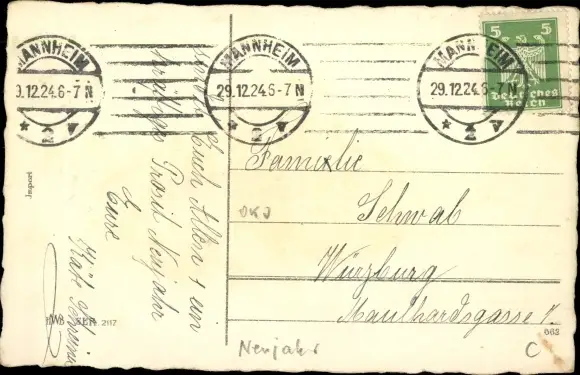 MANNHEIM
9.12.24.6-7 N
* 2 v
MANNHEIM
29.12.24.6-7 N
* 2 v
MANNHEIM
29.12.24.6-7 N
* 2 v
5 5
Deutsches
Reich
Euch Allen + ein
Prosit Neujahr
Eure
Käte
Import
SER. 2117
Familie
Schwab
Würzburg
Maulhardsgasse
662
OKJ
Neujahr
C